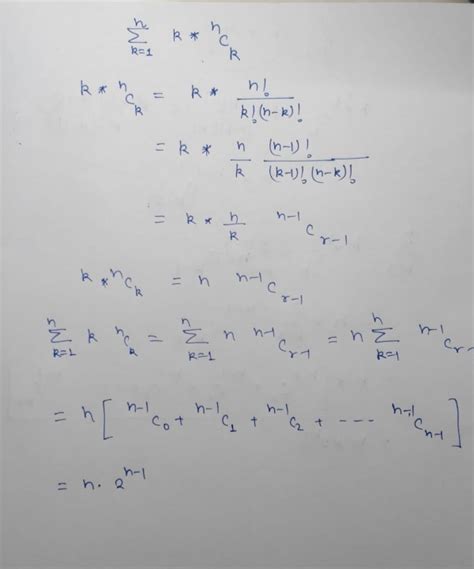 n∑k=1 k * ⁿCₖ
k * ⁿCₖ = k * n! / k!(n-k)!
= k * n/k (n-1)! / (k-1)!(n-k)!
= k * n/k ⁿ⁻¹Cᵣ₋₁
k * ⁿCₖ = n ⁿ⁻¹Cᵣ₋₁
n∑k=1 k ⁿCₖ = n∑k=1 n ⁿ⁻¹Cᵣ₋₁ = n n∑k=1 ⁿ⁻¹Cᵣ₋
= n [ ⁿ⁻¹C₀ + ⁿ⁻¹C₁ + ⁿ⁻¹C₂ + ---- ⁿ⁻¹Cₙ₋₁ ]
= n. 2ⁿ⁻¹